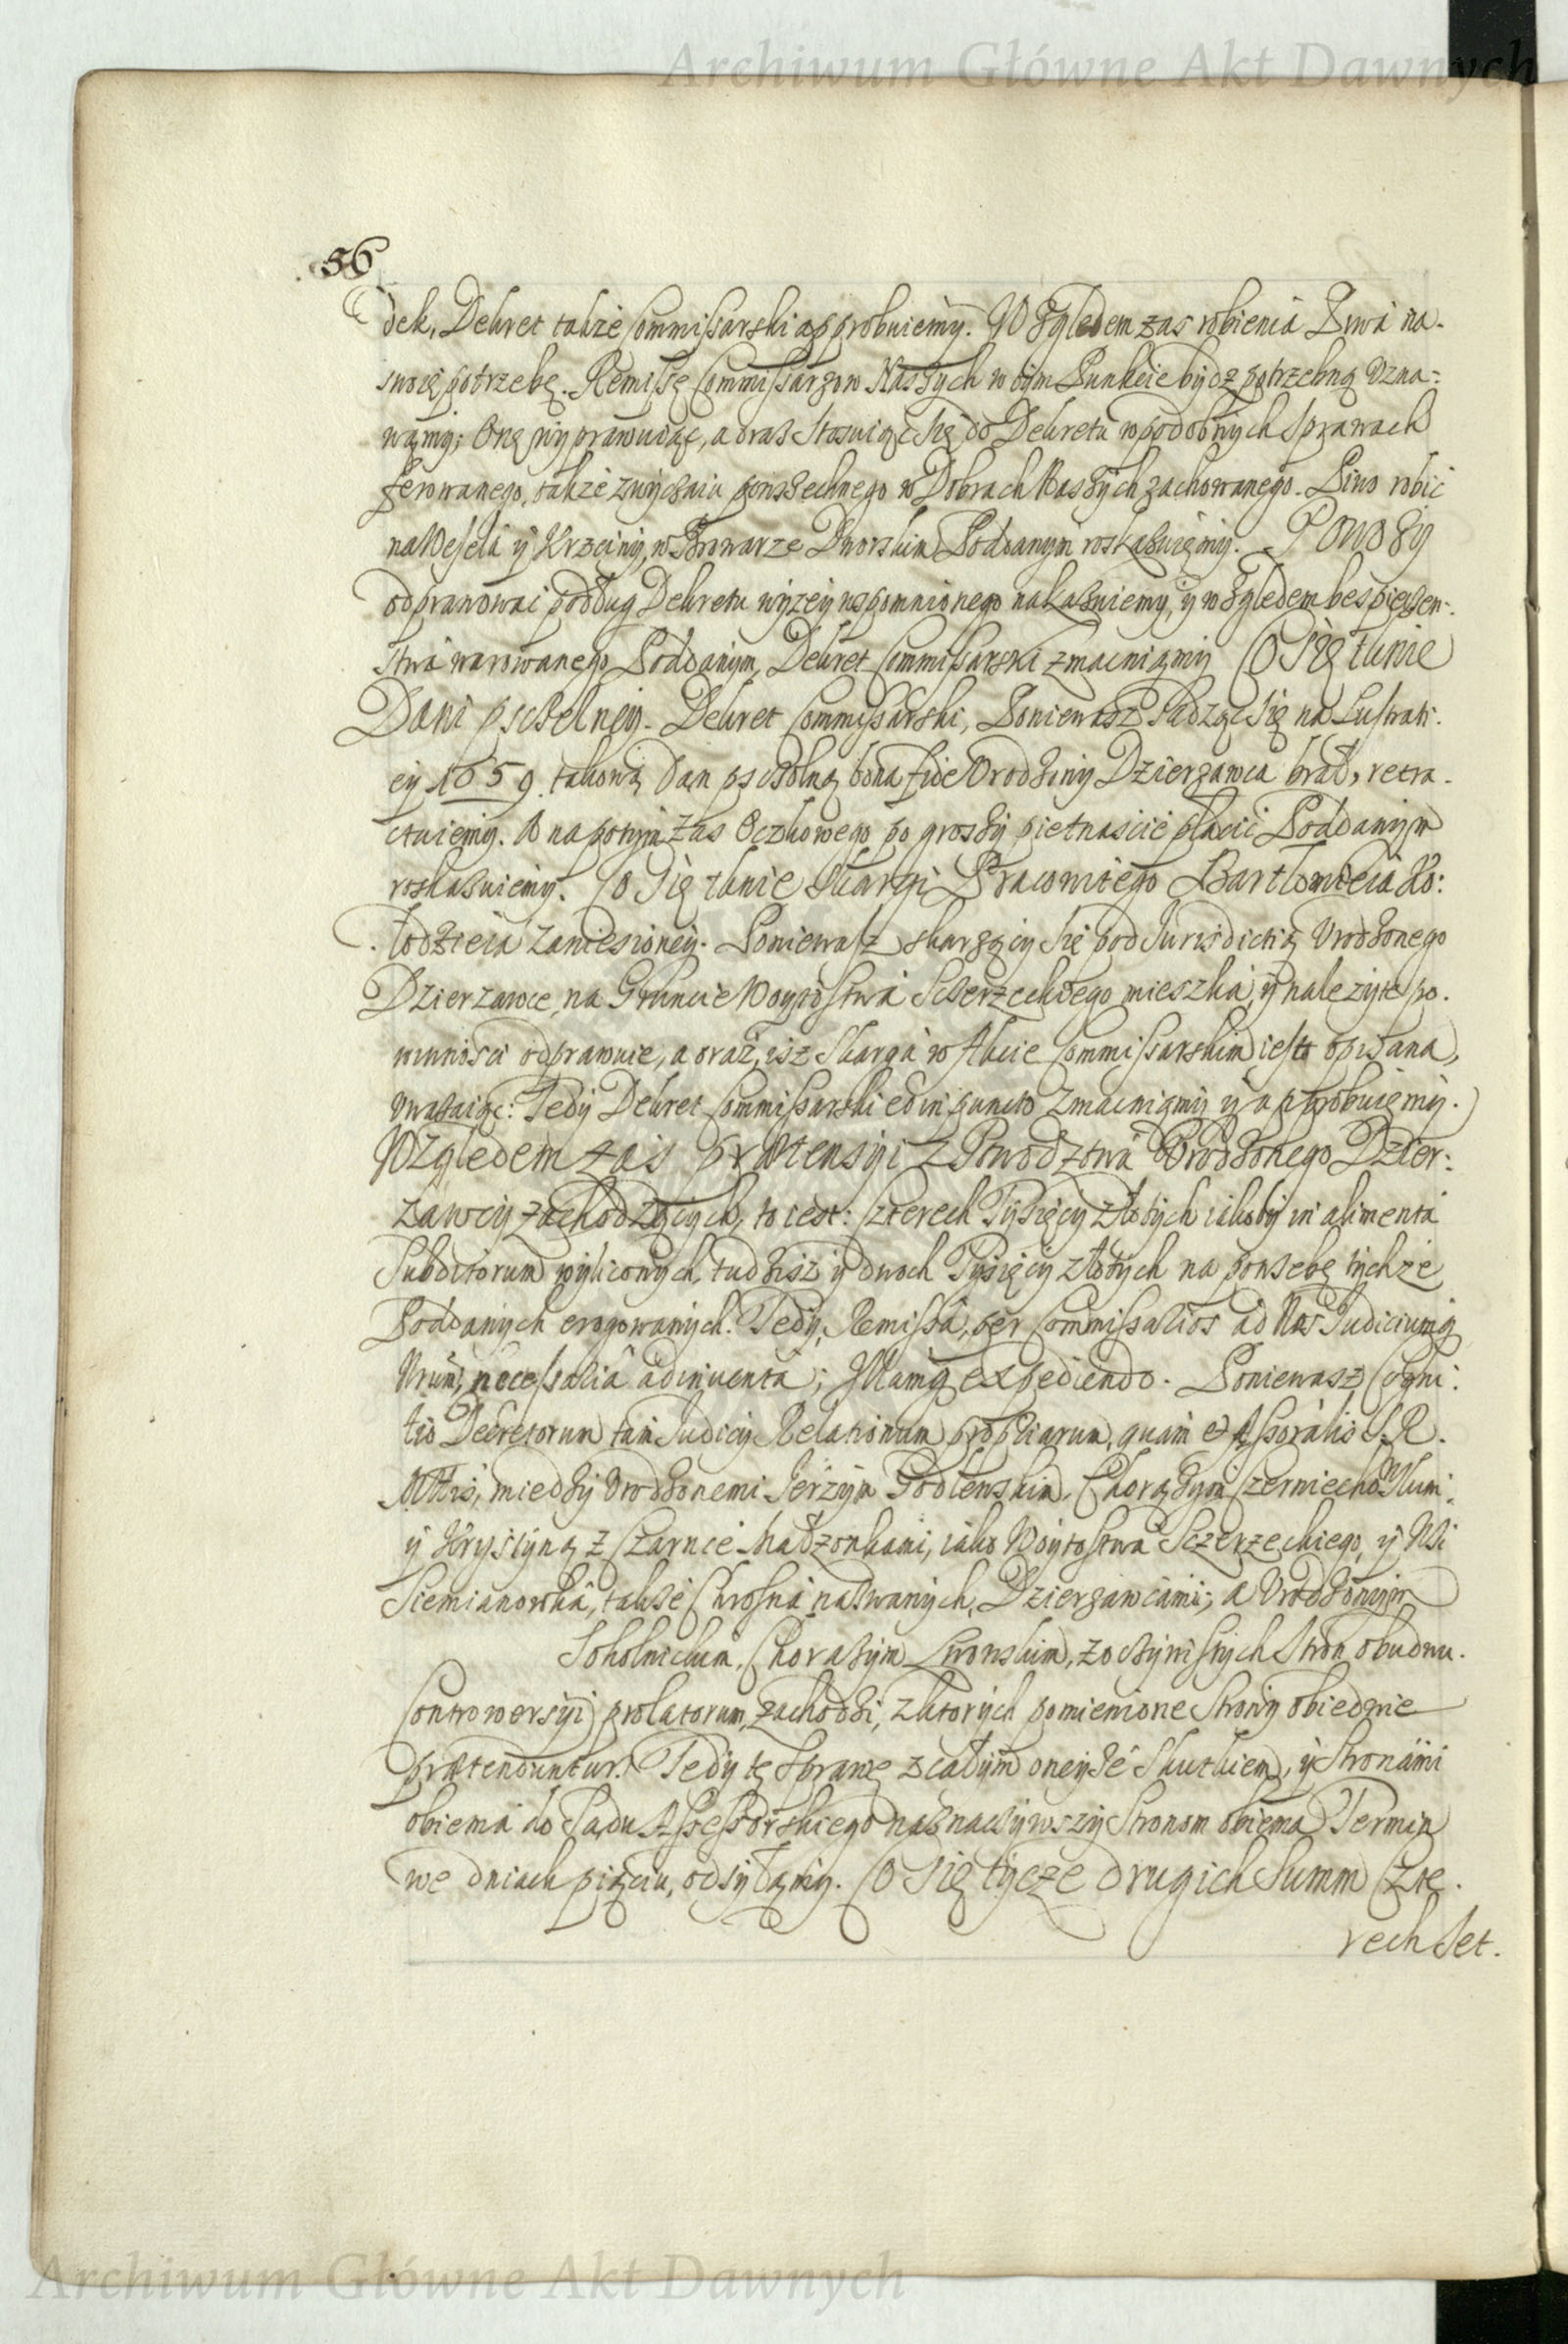 Archiwum Główne Akt Dawnych
56
dek, Dekret także Commissarski approbuiemy. Względem zas robienia Piwa na
swoię potrzebę. Remissę Commissarzow Naszych w tym Punkcie bydz potrzebną uzna-
wamy; Onę wyprawuiąc, a oraz stosuiąc się do Dekretu w podobnych sprawach
ferowanego, także zwyczaiu powszechnego w Dobrach Naszych zachowanego. Piwo robic
na Wesela y Krzciny, w Browarze Dworskim Poddanym roskazuięmy. Powozy
odprawowac podług Dekretu wyzey wspomnionego nakazuiemy, y względem bespieczen-
stwa warowanego Poddanym, Dekret Commissarski zmacniamy Co się tknie
Dani psczelney. Dekret Commissarski, Poniewasz sadząc się na Lustrati-
ey 1659. takową dan psczolną bona fide Urodzony Dzierzawca brał, retra-
ctuiemy. A na potym zas Oczkowego po groszy pietnascie płacic Poddanym
roskazuiemy. Co się tknie skargi Pracowitego Bartłomieia Ko:
łodzieia zaniesioney. Poniewasz skarzący się pod Jurisdictią Urodzonego
Dzierzawce, na Gruncie Woytostwa Sczerzeckiego mieszka, y nalezyte po-
winnosci odprawuie, a oraz, isz skarga w Akcie Commissarskim iest opisana,
uwazaiąc: Tedy Dekret Commissarski eo in puncto zmacniamy y approbuięmy.
Względem zas prætensyi z Powodztwa Urodzonego Dzier-
zawcy zachodzących, to iest: Czterech Tysięcy złotych iakoby in alimenta
Subditorum wyliczonych, tudzisz y dwoch Tysięcy złotych na potrzebę tychze
Poddanych erogowanych. Tedy, Remissa, per Commissarios ad Nos Judiciumq
Nrum, necessaria adinuenta; Illamq expediendo. Poniewasz Cogni-
tio Decretorum tam Judicij Relationum propriarum, quam et Assoralis S. R.
Mttis, miedzy Urodzonemi Jerzym Godlewskim, Chorązym Czerniechowskim,
y Krystyną z Czarnce Małzonkami, iako Woytostwa Sczerzeckiego, y Wsi
Siemianowka, takze Chrosna nazwanych, Dzierzawcami; a Urodzonym
Sokolnickim, Chorazym Lwowskim, z oczywistych stron obudwu
Controwersyi prolatorum, zachodzi, z ktorych pomienione strony obiedwie
prætenduntur. Tedy tę sprawę z całym oneyże skutkiem, y stronami
obiema do Sadu Assessorskiego naznaczywszy stronom obiema Termin
we dniach piąciu, odsyłamy. Co się tycze drugich Summ Czte-
rech set.
Archiwum Główne Akt Dawnych